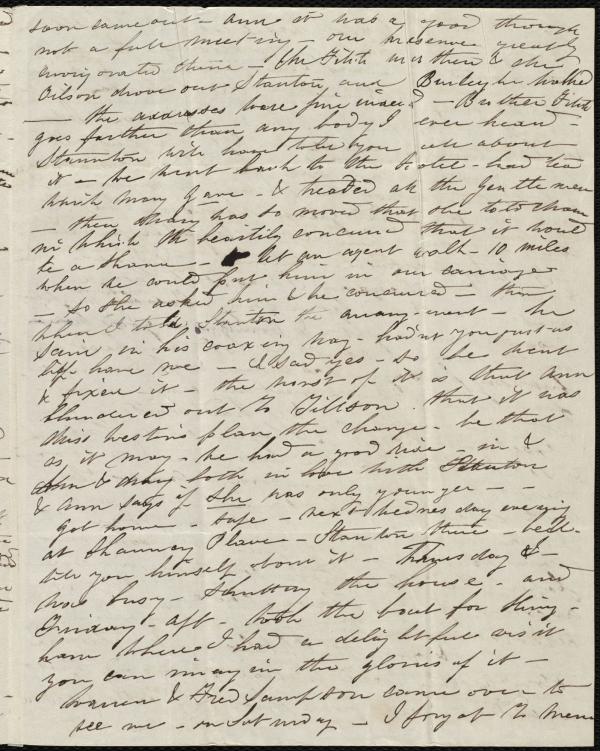 soon came out - Ann it was a good though
not a full meeting - our presence greatly
invigorated them - Mr Fitch was there & Mr
Gilson drove out Stanton and Burleigh
- the addresses were fine indeed - Brother Fitch
goes farther than any body I ever heard
Stanton will have to tell you all about
it - we went back to the hotel - had tea
which Mary gave - & treated all the gentlemen
- then Mary was so moved that she told
me which I heartily concurred that it would
be a shame - to let an agent walk 10 miles
when he could put him in our carriage
- so she asked him & he concurred - then
when I told Stanton the arrangement - he
said in his coaxing way - hadn't you just as
lief have me - I said yes - so he went
& fixed it - the worst of it is that Ann
blundered out to Tillson that it was
Miss Weston's plan the change - be that
as it may - we had a good ride - in &
Ann & Mary both in love with Stanton
& Ann says if she was only younger -
got home - safe - next Wednesday evening
at Chauncy Place - Stanton there - he'll
tell you himself about it - Thursday &
was busy - shutting the house - and
Friday - aft - took the boat for Hing-
ham where I had a delightful visit
you can imagin the glories of it -
Warren & Fred Sampson came over to
see me - on Saturday - I forgot to men